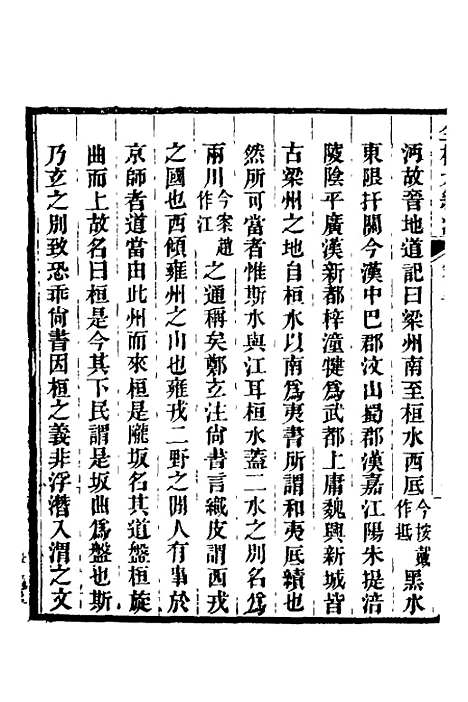 沔故晉地道記曰梁州南至桓水西底今按戴作抵黑水
東限扞關今漢中巴郡汶山蜀郡漢嘉江陽朱提涪
陵陰平廣漢新都梓潼犍爲武都上庸魏興新城皆
古梁州之地自桓水以南爲夷書所謂和夷底績也
然所可當者惟斯水與江耳桓水蓋二水之別名爲
兩川今案趙作江之通稱矣鄭玄注尙書言織皮謂西戎
之國也西傾雍州之山也雍戎二野之閒人有事於
京師者道當由此州而來桓是隴坂名其道盤桓旋
曲而上故名曰桓是今其下民謂是坂曲爲盤也斯
乃玄之別致恐乖尙書因桓之義非浮潛入渭之文